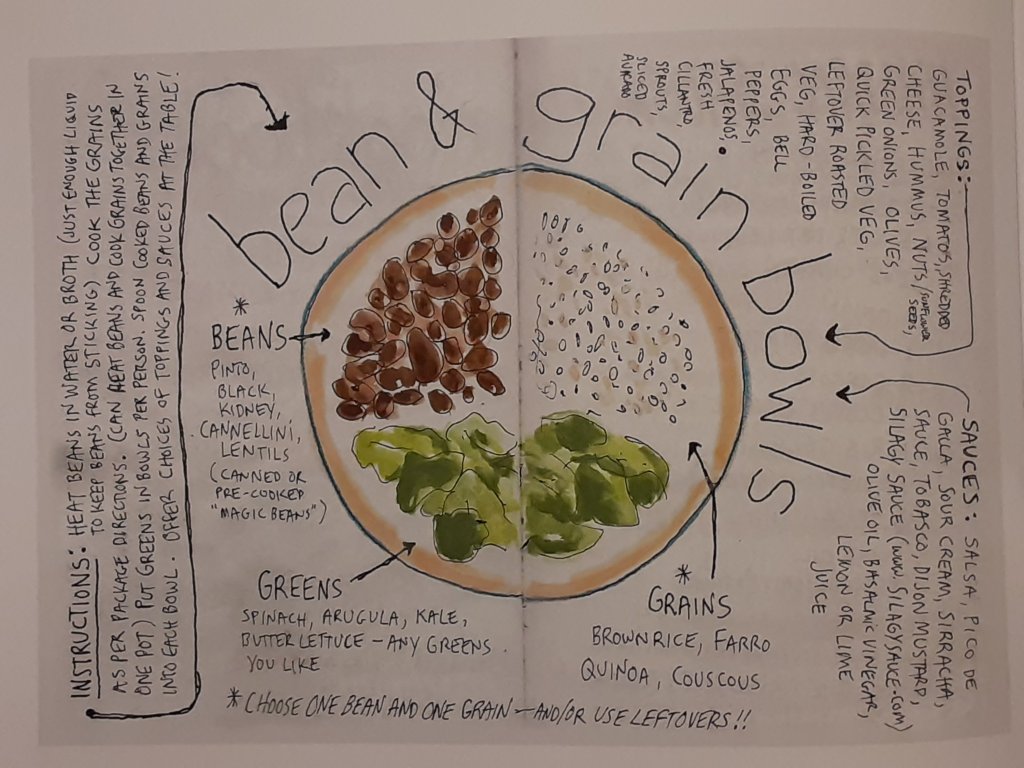 bean & grain bowls
INSTRUCTIONS: HEAT BEANS IN WATER OR BROTH (JUST ENOUGH LIQUID
TO KEEP BEANS FROM STICKING) COOK THE GRAINS
AS PER PACKAGE DIRECTIONS. (CAN HEAT BEANS AND COOK GRAINS TOGETHER IN
ONE POT) PUT GREENS IN BOWLS PER PERSON. SPOON COOKED BEANS AND GRAINS
INTO EACH BOWL. OFFER CHOICES OF TOPPINGS AND SAUCES AT THE TABLE!
* BEANS
PINTO,
BLACK,
KIDNEY,
CANNELLINI,
LENTILS
(CANNED OR
PRE-COOKED
"MAGIC BEANS")
GREENS
SPINACH, ARUGULA, KALE,
BUTTER LETTUCE - ANY GREENS
YOU LIKE
* GRAINS
BROWN RICE, FARRO
QUINOA, COUSCOUS
* CHOOSE ONE BEAN AND ONE GRAIN - AND/OR USE LEFTOVERS!!
TOPPINGS:
GUACAMOLE, TOMATOS, SHREDDED
CHEESE, HUMMUS, NUTS/SUNFLOWER SEEDS,
GREEN ONIONS, OLIVES,
QUICK PICKLED VEG,
LEFTOVER ROASTED
VEG, HARD-BOILED
EGGS, BELL
PEPPERS,
JALAPENOS,
FRESH
CILLANTRO,
SPROUTS,
SLICED
AVACADO
SAUCES: SALSA, PICO DE
GALLA, SOUR CREAM, SIRRACHA,
SAUCE, TOBASCO, DIJON MUSTARD,
SILAGY SAUCE (WWW.SILAGYSAUCE.COM)
OLIVE OIL, BASALMIC VINEGAR,
LEMON OR LIME
JUICE